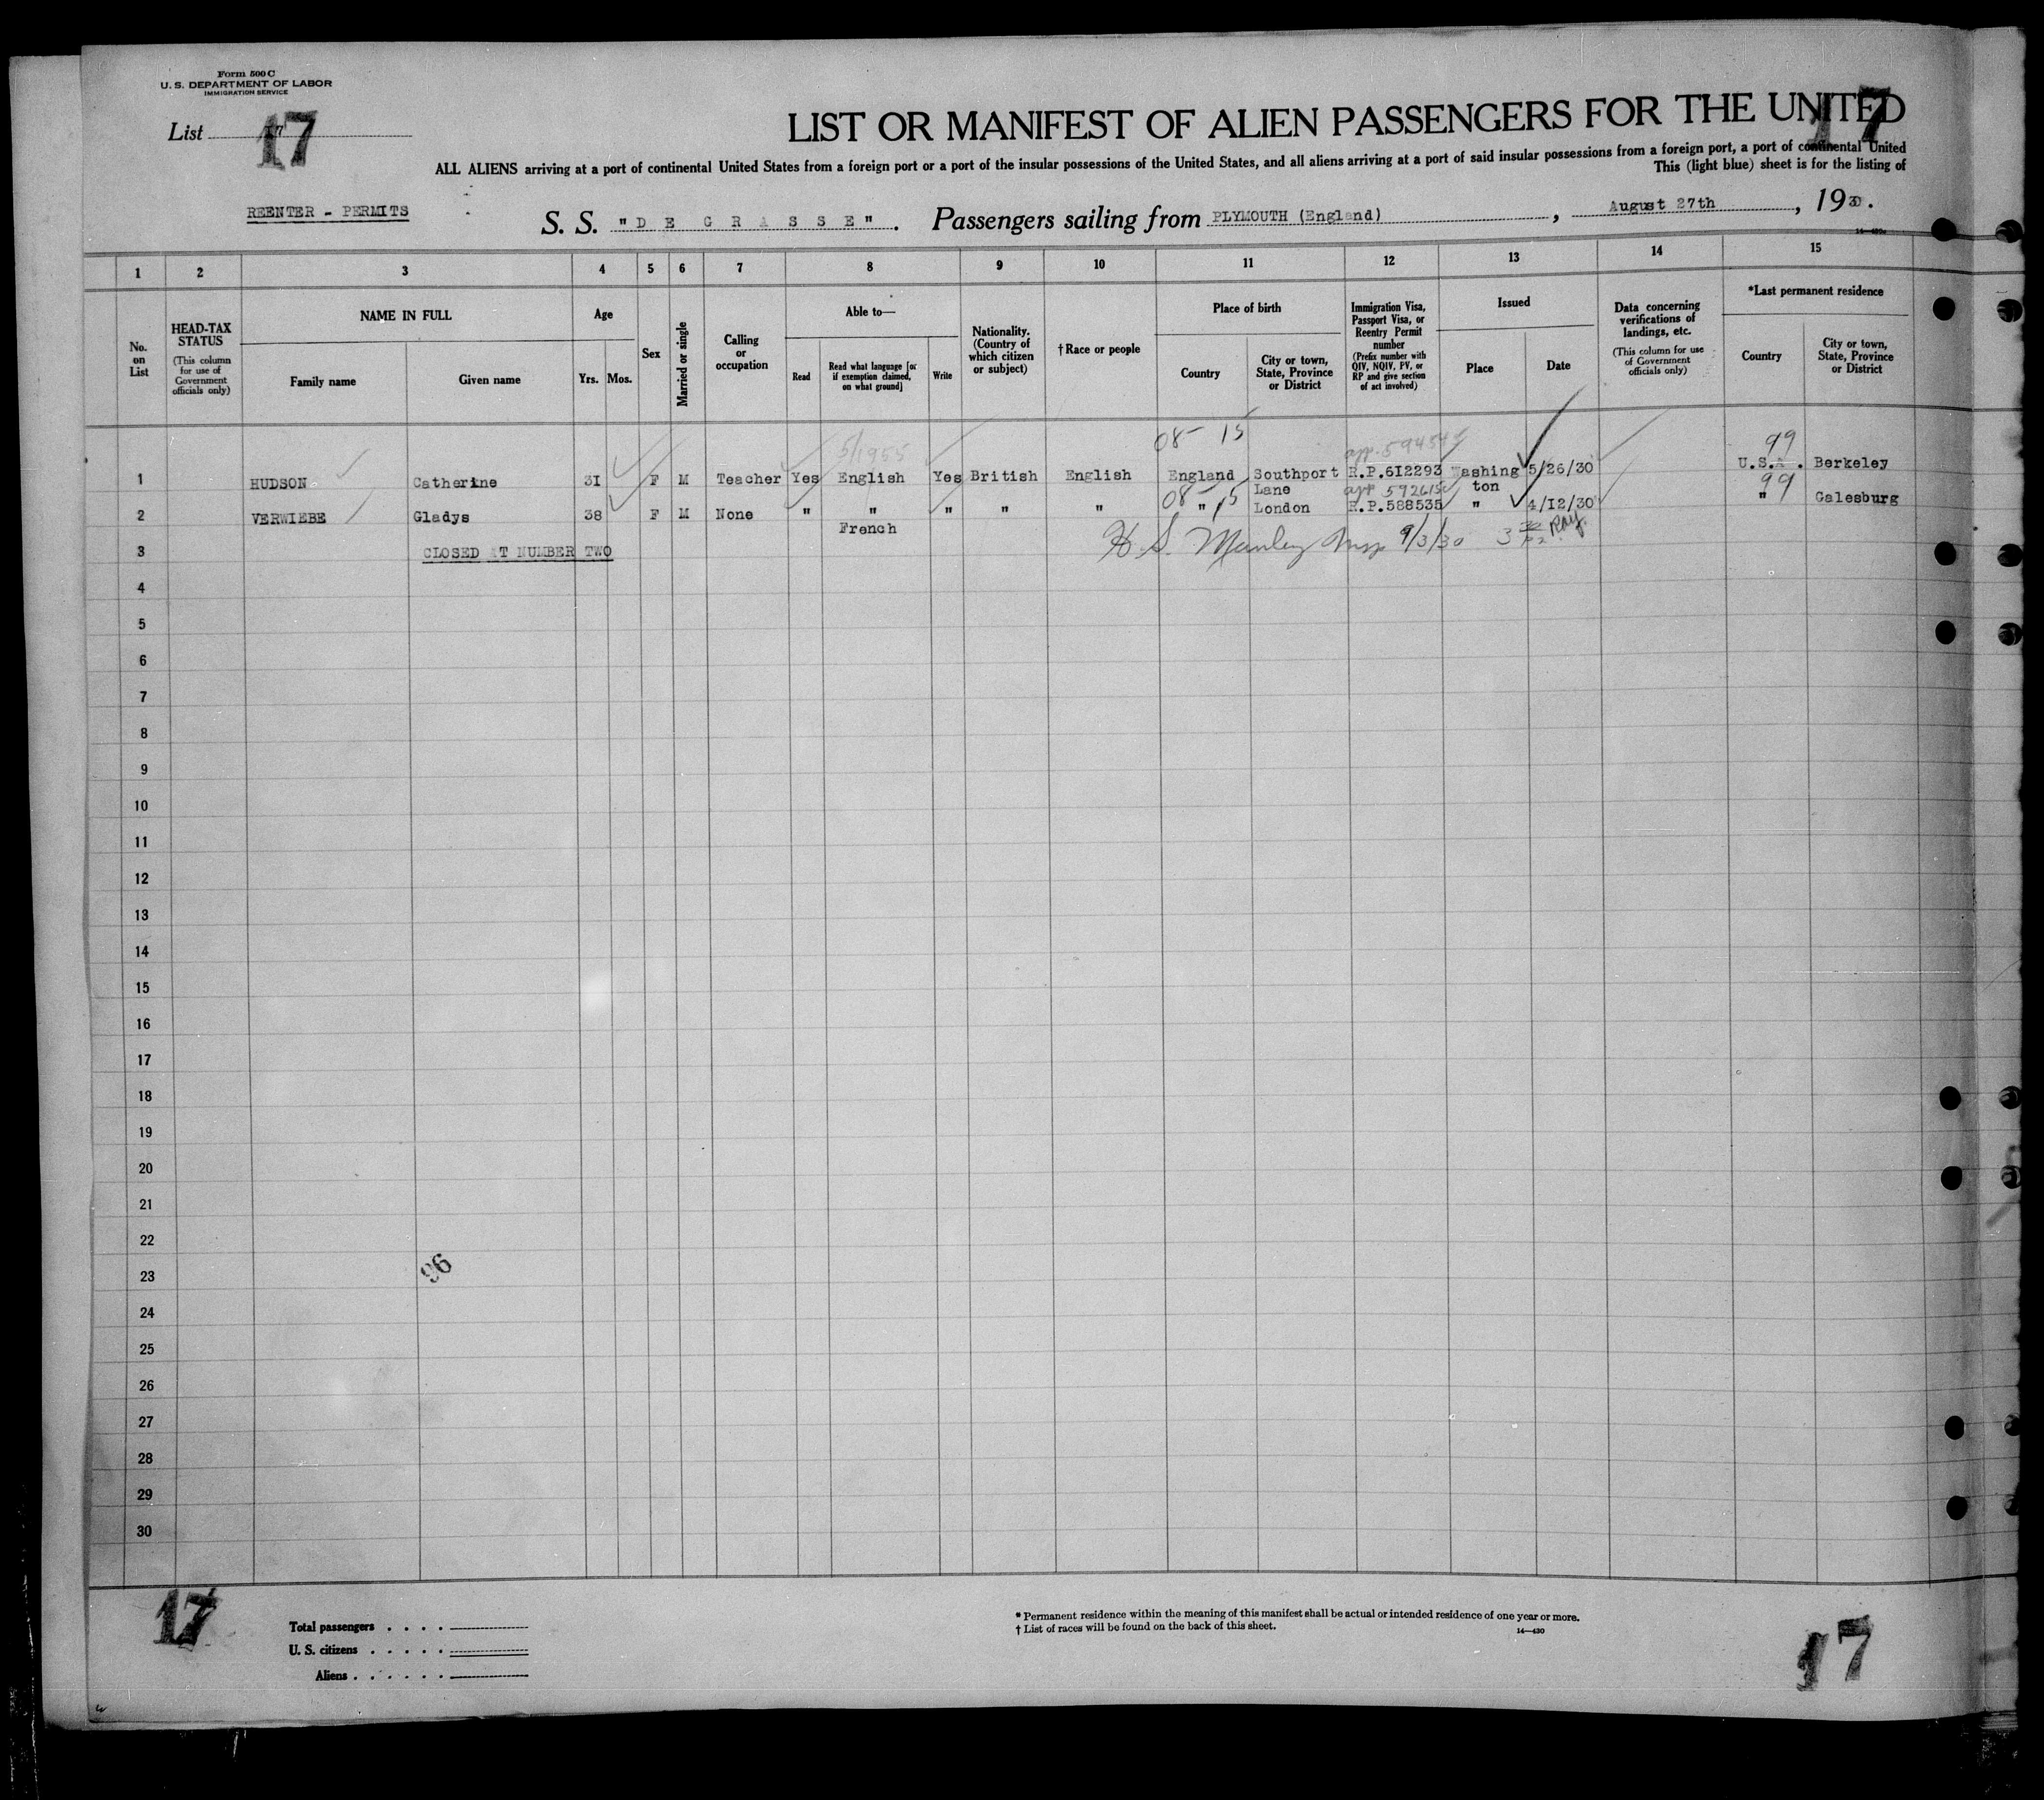 Form 500 C
U. S. DEPARTMENT OF LABOR
IMMIGRATION SERVICE
List 17
17
17
LIST OR MANIFEST OF ALIEN PASSENGERS FOR THE UNITED
ALL ALIENS arriving at a port of continental United States from a foreign port or a port of the insular possessions of the United States, and all aliens arriving at a port of said insular possessions from a foreign port, a port of continental United
This (light blue) sheet is for the listing of
REENTER - PERMITS
S. S. "D E G R A S S E". Passengers sailing from PLYMOUTH (England), August 27th, 1930.
1 2 3 4 5 6 7 8 9 10 11 12 13 14 15
No. on List
HEAD-TAX STATUS (This column for use of Government officials only)
NAME IN FULL
Family name
Given name
Age
Yrs. Mos.
Sex
Married or single
Calling or occupation
Able to—
Read
Read what language [or if exemption claimed, on what ground]
Write
Nationality. (Country of which citizen or subject)
†Race or people
Place of birth
Country
City or town, State, Province or District
Immigration Visa, Passport Visa, or Reentry Permit number (Prefix number with QIV, NQIV, PV, or RP and give section of act involved)
Issued
Place
Date
Data concerning verifications of landings, etc. (This column for use of Government officials only)
*Last permanent residence
Country
City or town, State, Province or District
5/1955 08 - 15 99
1 HUDSON Catherine 3I F M Teacher Yes English Yes British English England Southport R.P.6I2293 Washing 5/26/30 U.S.A. Berkeley
Lane ton
08 - 15 99
2 VERWIEBE Gladys 38 F M None " " " " " " London R.P.588535 " 4/I2/30 " Galesburg
French
3 CLOSED AT NUMBER TWO H. S. Manley Insp 9/3/30
4
5
6
7
8
9
10
11
12
13
14
15
16
17
18
19
20
21
22
23
96
24
25
26
27
28
29
30
17
Total passengers
U. S. citizens
Aliens
* Permanent residence within the meaning of this manifest shall be actual or intended residence of one year or more.
† List of races will be found on the back of this sheet.
14—430
17